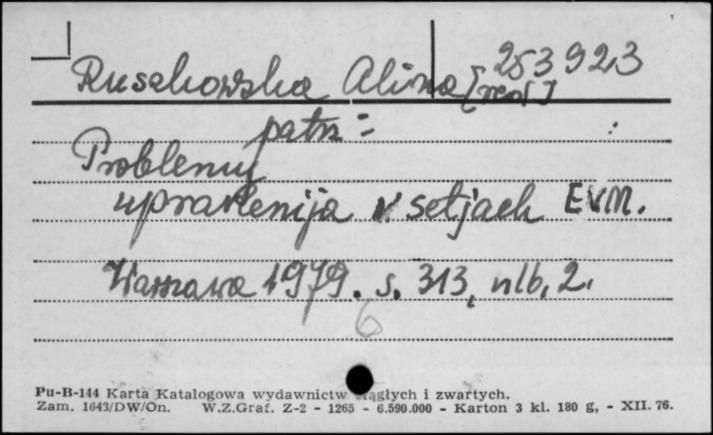 253923
Ruszkowska Alina [red]
patrz =
Problemy
upravlenija v setjach EVM.
Warszawa 1979. s. 313, nlb. 2.
6
Pu-B-144 Karta Katalogowa wydawnictw ciągłych i zwartych.
Zam. 1643/DW/On. W.Z.Graf. Z-2 - 1265 - 6.590.000 - Karton 3 kl. 180 g, - XII. 76.